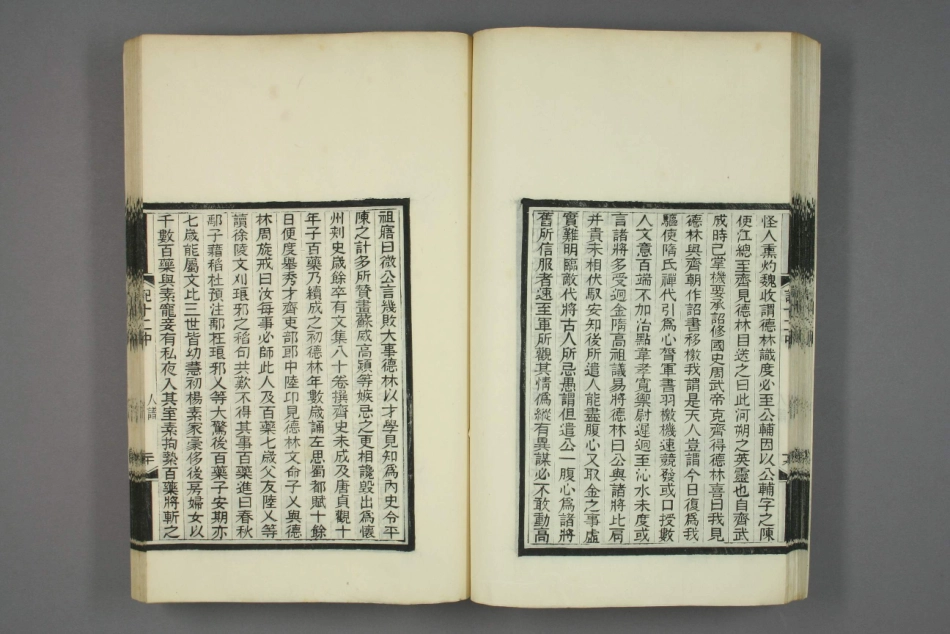 怪人熏灼魏收謂德林識度必至公輔因以公輔字之陳
使江總至齊見德林目送之曰此河朔之英靈也自齊武
成時已掌機要承詔修國史周武帝克齊得德林喜曰我見
德林與齊朝作詔書移檄我謂是天人豈謂今日復為我
驅使隋氏禪代引為心膂軍書羽檄機速競發或口授數
人文意百端不加治點韋孝寬禦尉遲迥至沁水未度或
言諸將多受迥金隋高祖議易將德林曰公與諸將比肩
并貴未相伏馭安知後所遣人能盡腹心又取金之事虛
實難明臨敵代將古人所忌愚謂但遣公一腹心為諸將
舊所信服者速至軍所觀其情偽縱有異謀必不敢動高
祖寤曰微公言幾敗大事德林以才學見知為內史令平
陳之計多所贊畫蘇威高熲等嫉忌之更相讒毀出為懷
州刺史歲餘卒有文集八十卷撰齊史未成及唐貞觀十
年子百藥乃續成之初德林年數歲誦左思蜀都賦十餘
日便度舉秀才齊吏部郎中陸卬見德林文命子乂與德
林周旋戒曰汝每事必師此人及百藥七歲父友陸乂等
讀徐陵文刈琅邪之稻句共歎不得其事百藥進曰春秋
鄅子藉稻杜預注鄅在琅邪乂等大驚後百藥子安期亦
七歲能屬文此三世皆幼慧初楊素家豪侈後房婦女以
千數百藥與素寵妾有私夜入其室素拘縶百藥將斬之
十二中
人譜